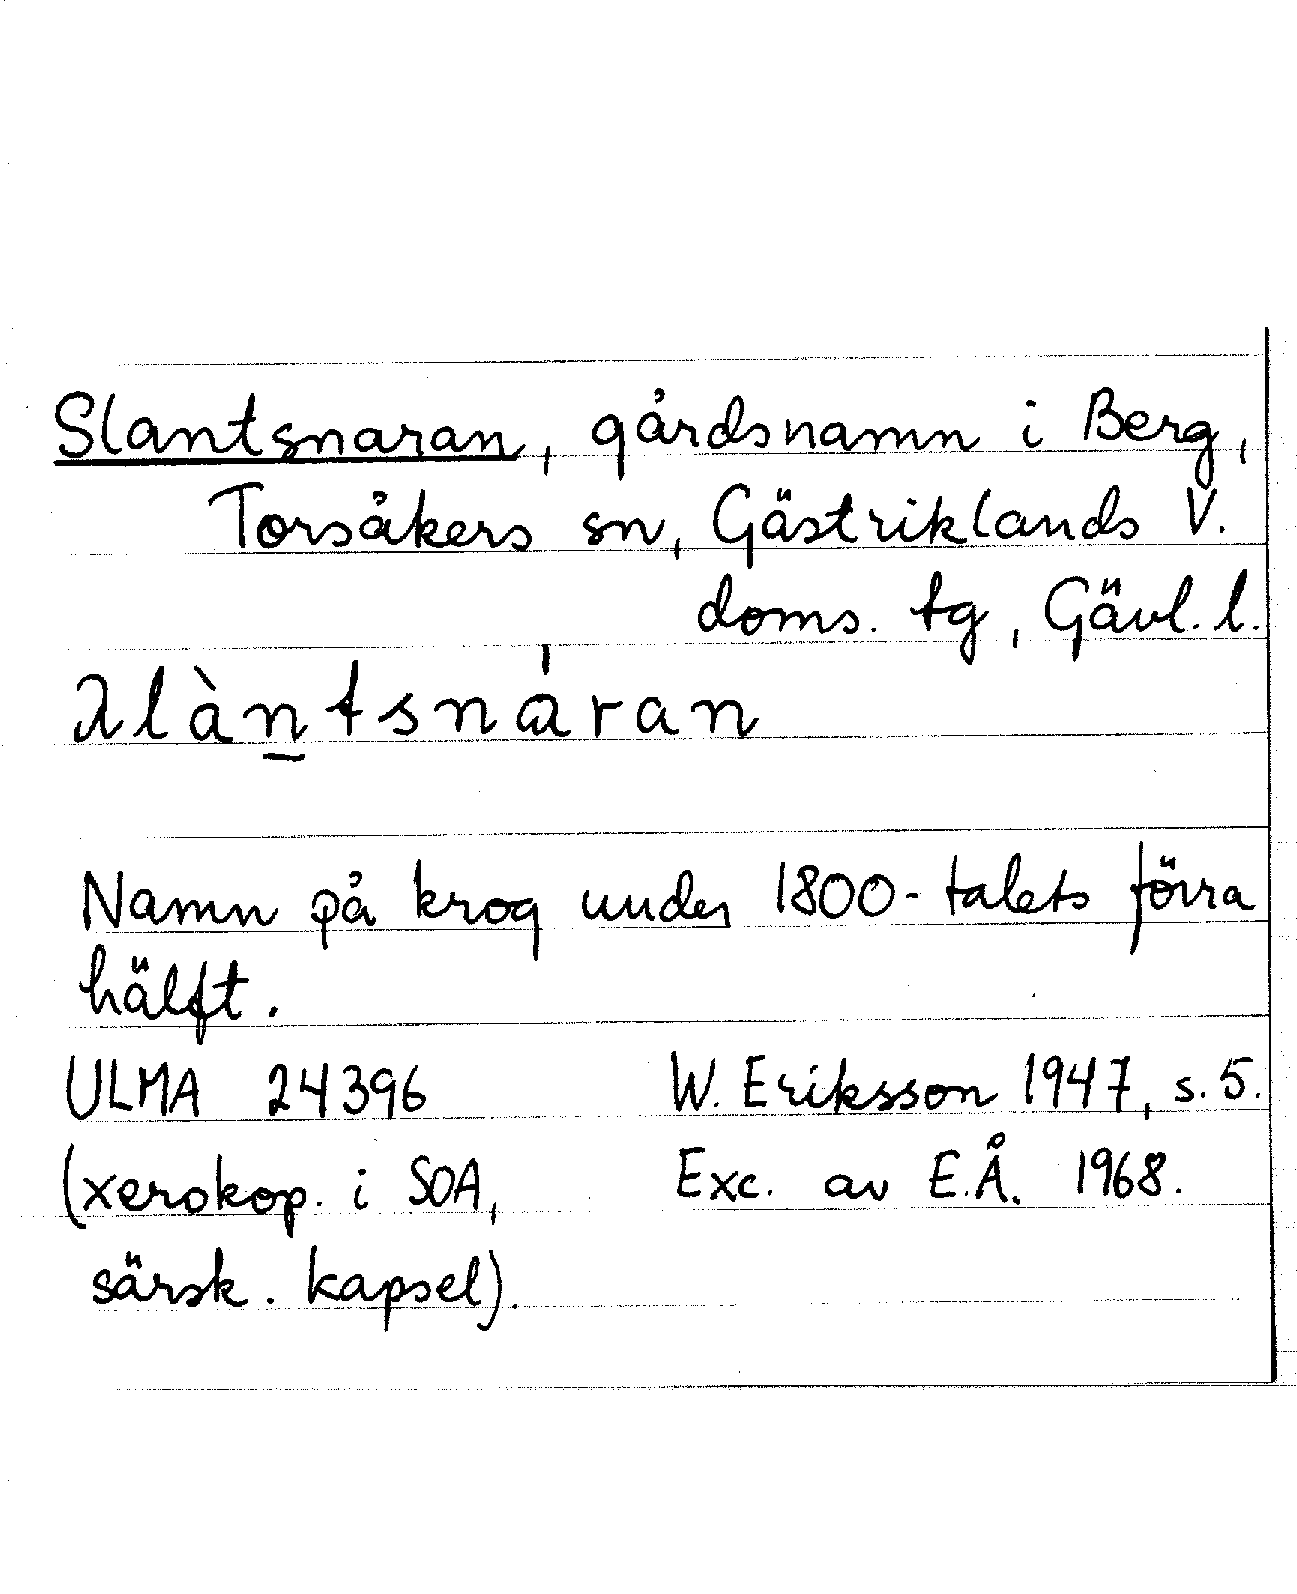 Slantsnaran, gårdsnamn i Berg,
Torsåkers sn, Gästriklands V.
doms. tg, Gävl. l.
Namn på krog under 1800-talets förra
hälft.
ULMA 24396 W. Eriksson 1947, s. 5.
(xerokop. i SOA, Exc. av E.Å. 1968.
särsk. kapsel).